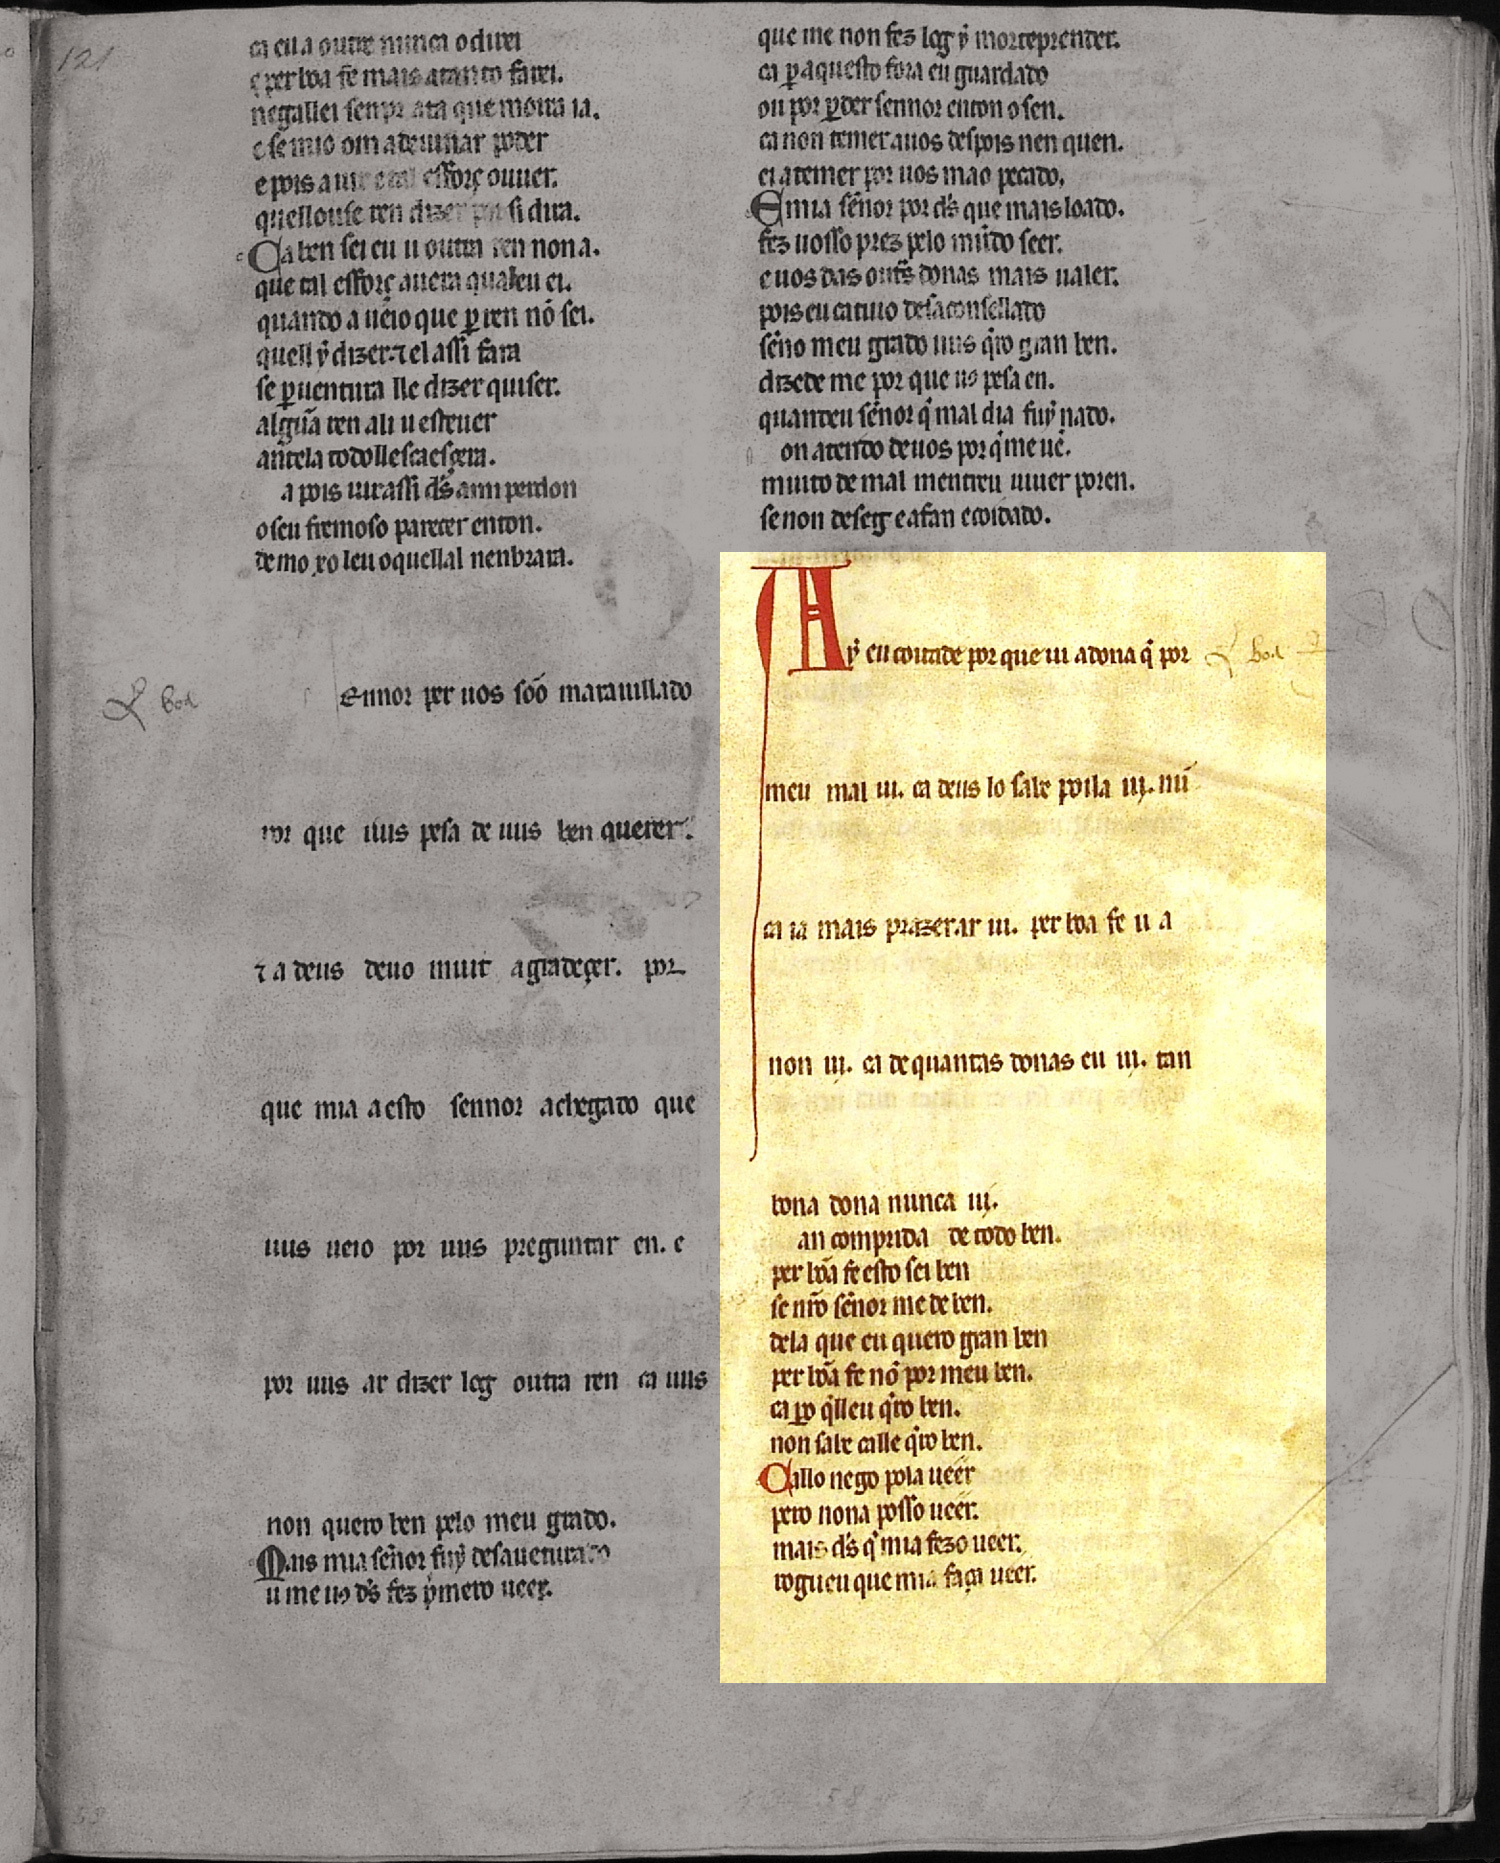 121
ca eu a outre nunca o direi
e per boa fe mais atanto farei.
negallei senpr ata que moira ia.
e se mio om adeuinar poder
e pois auir e tal efforç ouuer.
quellouse ren dizer por si dira.
Ca ben sei eu u outra ren non a.
que tal efforç auera qualeu ei.
quando a ueio que ꝑ ren nõ sei.
quell ẏ dizer ⁊ el assi fara
se ꝑuentura lle dizer quiser.
algũa ren ali u esteuer
antela todollescaesçera.
a pois uirassi d̃s ami perdon
o seu fremoso parecer enton.
demo xo leu o quellal nenbrara.
Ennor per uos sõo marauillado
por que uus pesa de uus ben querer.
⁊ a deus deuo muit agradeçer. por
que mia aesto sennor achegado que
uus ueio por uus preguntar en. e
por uus ar dizer log outra ren ca uus
non quero ben pelo meu grado.
Mais mia señor fuẏ desauenturado
u me uos d̃s fez p̃mero ueer.
que me non fez log ẏ mort eprender.
ca ꝑ aquesto fora eu guardado
ou por ꝑder sennor enton o sen.
ca non temer auos despois nen quen.
ei atemer por uos mao pecado.
E mia señor por d̃s que mais loado.
fez uosso prez pelo mũdo seer.
e uos das outr̃s donas mais ualer.
pois eu catiuo desaconsellado
seño meu grado uus q̃ro gran ben.
dizede me por que uos pesa en.
quanteu señor q̃ mal dia fuẏ nado.
on atendo de uos por q̃ me uẽ.
muito de mal mentreu uiuer poren.
se non deseg e afan e coidado.
Aẏ eu coitade por que ui a dona q̃ por
meu mal ui. ca deus lo sabe poila ui. nũ
ca ia mais prazer ar ui. per boa fe u a
non ui. ca de quantas donas eu ui. tan
bona dona nunca ui.
an comprida de todo ben.
per bõa fe esto sei ben
se nr̃o señor me de ben.
dela que eu quero gran ben
per bõa fe nõ por meu ben.
ca ꝑo q̃lleu q̃ro ben.
non sabe calle q̃ro ben.
Callo nego pola ueer
pero nona posso ueer.
mais d̃s q̃ mia fezo ueer.
rogueu que mia faça ueer.